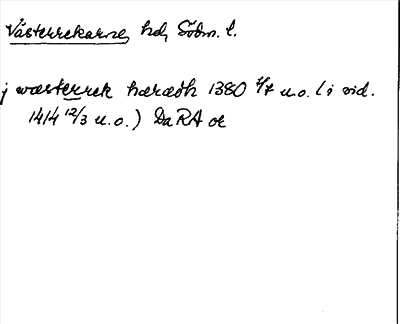 Västerrekarne, hd, Södm. l.
j wæsterrek hærædh 1380 1/7 u.o. (i vid.
1414 12/3 u.o.) DaRA or